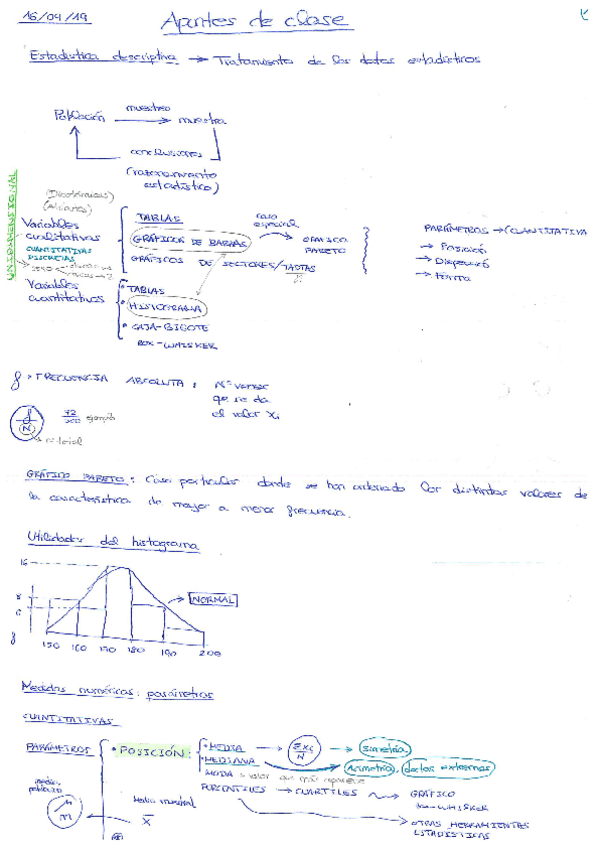 16/04/19
Apuntes de clase
Estadística descriptiva → Tratamiento de los datos estadísticos
muestreo
Población → muestra
conclusiones
(razonamiento
estadístico)
UNIDIMENSIONAL
(Dicotómicas)
Variables
cualitativas
CUANTITATIVAS
DISCRETAS
TABLAS
GRÁFICOS DE BARRAS
GRÁFICOS DE SECTORES/TARTAS
caso
especial
GRAFICO
PARETO
PARÁMETROS → CUANTITATIVA
→ Posición
→ Dispersió
→ Forma
Variables
cuantitativas
• TABLAS
• HISTOGRAMA
• CAJA-BIGOTE
BOX-WHISKER
f → FRECUENCIA ABSOLUTA: Nº veces
que se da
el valor xi
f
N
ejemplo
→ nº total
GRÁFICO PARETO: Caso particular donde se han ordenado los distintos valores de
la característica de mayor a menor frecuencia.
Utilidades del histograma
16
→ NORMAL
f
150 160 170 180 190 200
Medidas numéricas: parámetros
CUANTITATIVAS
PARÁMETROS
• POSICIÓN:
• MEDIA → Σxi
N
→ simetría
• MEDIANA
Asimetría, datos extremos
MODA → valor que más
PERCENTILES → CUARTILES → GRÁFICO
BOX-WHISKER
→ OTRAS HERRAMIENTAS
ESTADÍSTICAS
Media muestral
x̄